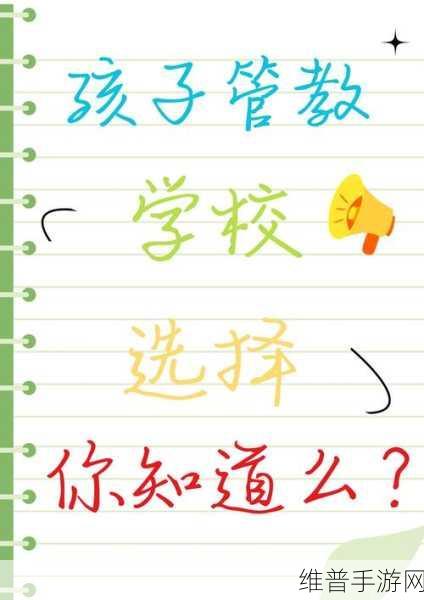 孩子管教
学校
选择
你知道么？
维普手游网